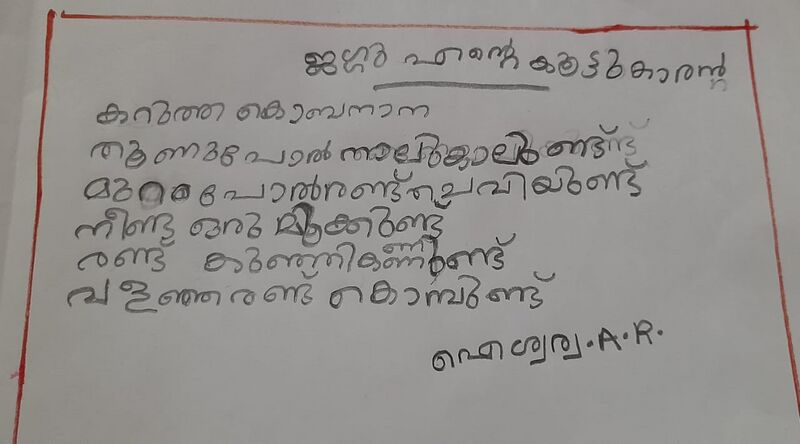 ജഗ്ഗു എന്റെ കൂട്ടുകാരൻ
കറുത്ത കൊബനാന
തൂണുപോൽ നാലുകാലുണ്ട്
മുറംപോൽരണ്ട്ചെവിയുണ്ട്
നീണ്ട ഒരു മൂക്കുണ്ട്
രണ്ട് കുഞ്ഞികണ്ണുണ്ട്
വളഞ്ഞരണ്ട് കൊമ്പുണ്ട്
ഐശ്വര്യ.A.R.